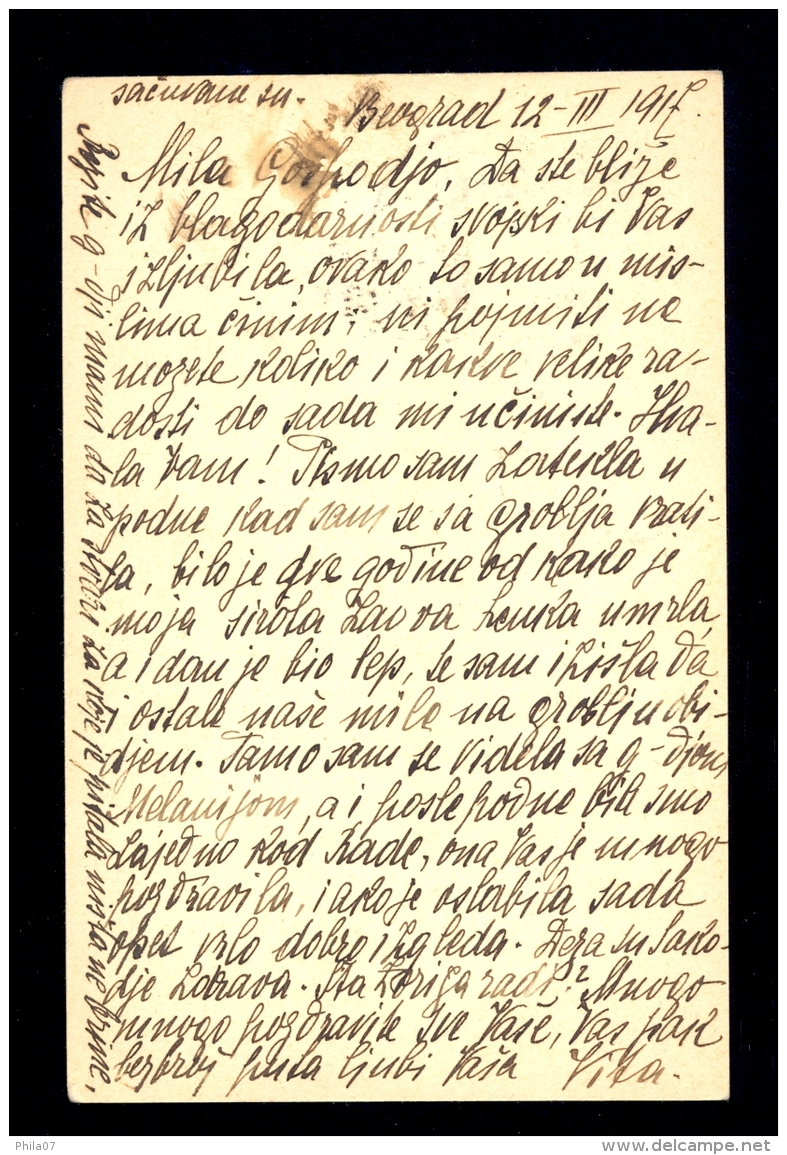 Beograd 12-III 1917.
Mila Gospodjo, Da ste bliže
iz blagodarnosti srpski bi Vas
izljubila, ovako to samo u mis-
lima činim; ni pojmiti ne
možete koliko i kakve velike ra-
dosti do sada mi učiniste. Hva-
la Vam! Pismo sam zatekla u
podne kad sam se sa groblja vrati-
la, bilo je dve godine od kako je
moja sirota zaova Lenka umrla,
a i dan je bio lep, te sam izišla da
i ostale naše mile na groblju obi-
djem. Tamo sam se videla sa g-djom
Melanijom, a i posle podne bile smo
zajedno kod Rade, ona Vas je mnogo
pozdravila, iako je oslabila sada
opet vrlo dobro izgleda. Deca su tako-
dje zdrava. Šta Zoriga radi? Mnogo
mnogo pozdravite sve Vaše, Vas pak
bezbroj puta ljubi Vaša Vita.
g-dji mam da za stvari za koje je pitala ništa ne brine,
sačuvane su.
Phila07
www.delcampe.net